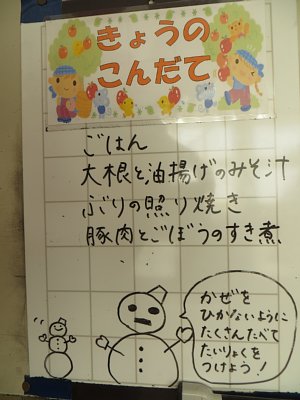 きょうの
こんだて
ごはん
大根と油揚げのみそ汁
ぶりの照り焼き
豚肉とごぼうのすき煮
かぜを
ひかないように
たくさんたべて
たいりょくを
つけよう！